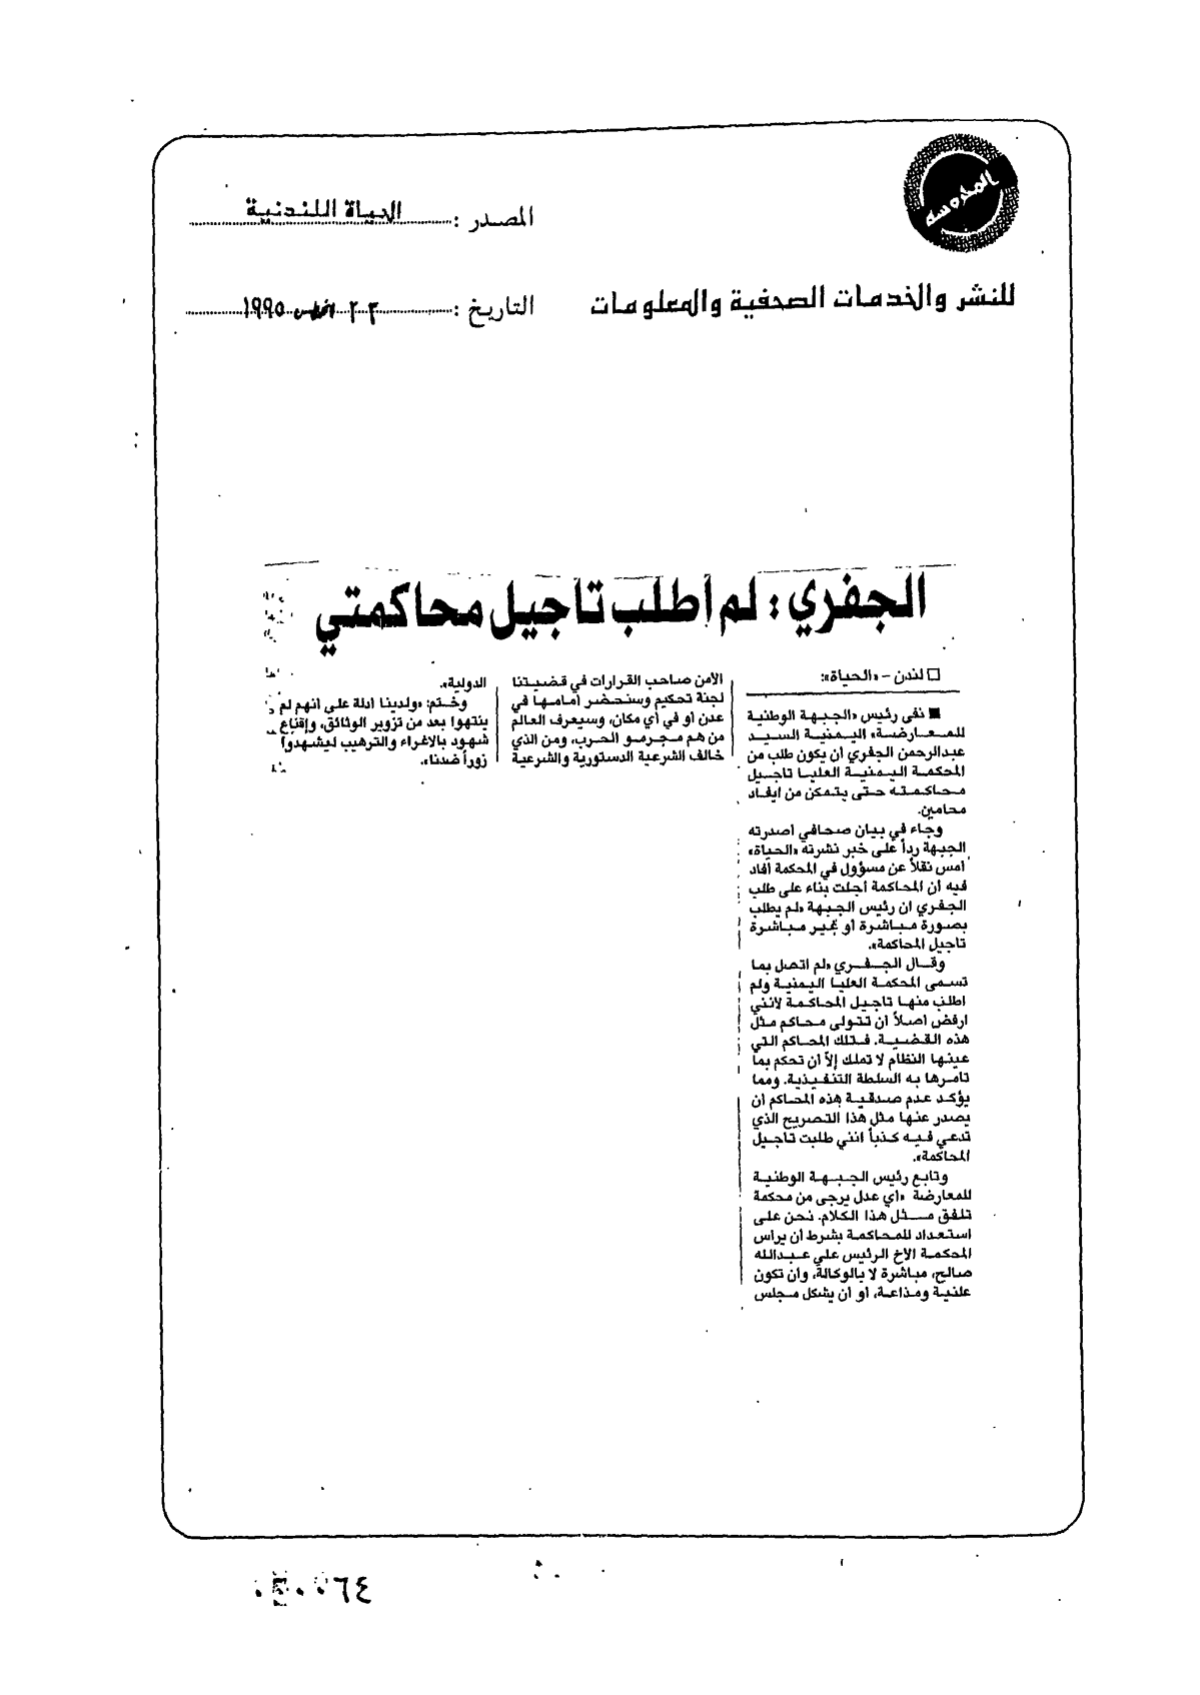 المحروسة
المصدر : الحياة اللندنية
للنشر والخدمات الصحفية والمعلومات
التاريخ : ٢٣ أغسطس ١٩٩٥
الجفري : لم أطلب تأجيل محاكمتي
□ لندن – «الحياة»:
■ نفى رئيس «الجبهة الوطنية
للمعارضة» اليمنية السيد
عبدالرحمن الجفري أن يكون طلب من
المحكمة اليمنية العليا تأجيل
محاكمته حتى يتمكن من ايفاد
محامين.
وجاء في بيان صحافي أصدرته
الجبهة رداً على خبر نشرته «الحياة»
امس نقلاً عن مسؤول في المحكمة أفاد
فيه أن المحاكمة أجلت بناء على طلب
الجفري ان رئيس الجبهة «لم يطلب
بصورة مباشرة أو غير مباشرة
تأجيل المحاكمة».
وقال الجفري «لم اتصل بما
تسمى المحكمة العليا اليمنية ولم
اطلب منها تأجيل المحاكمة لأنني
ارفض اصلاً ان تتولى محاكم مثل
هذه القضية. فتلك المحاكم التي
عينها النظام لا تملك إلاّ أن تحكم بما
تأمرها به السلطة التنفيذية. ومما
يؤكد عدم صدقية هذه المحاكم ان
يصدر عنها مثل هذا التصريح الذي
تدعي فيه كذباً انني طلبت تأجيل
المحاكمة».
وتابع رئيس الجبهة الوطنية
للمعارضة «أي عدل يرجى من محكمة
تلفق مثل هذا الكلام. نحن على
استعداد للمحاكمة بشرط أن يرأس
المحكمة الأخ الرئيس علي عبدالله
صالح، مباشرة لا بالوكالة، وان تكون
علنية ومذاعة، أو أن يشكل مجلس
الأمن صاحب القرارات في قضيتنا
لجنة تحكيم وسنحضر أمامها في
عدن أو في أي مكان، وسيعرف العالم
من هم مجرمو الحرب، ومن الذي
خالف الشرعية الدستورية والشرعية
الدولية».
وختم: «ولدينا ادلة على انهم لم
ينتهوا بعد من تزوير الوثائق، وإقناع
شهود بالاغراء والترهيب ليشهدوا
زوراً ضدنا».